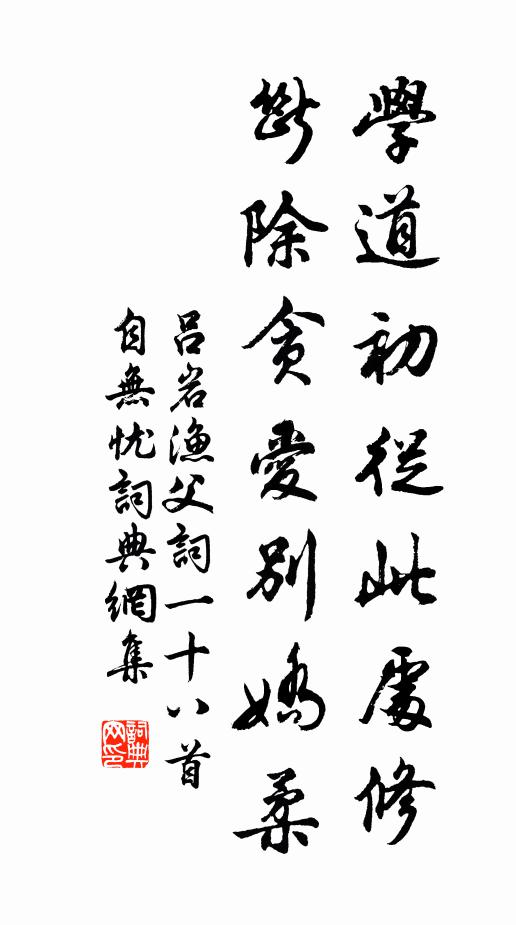 學道初從此處修
斷除貪愛別嬌柔
呂岩漁父詞一十八首
自無忧詞典網集
詞典